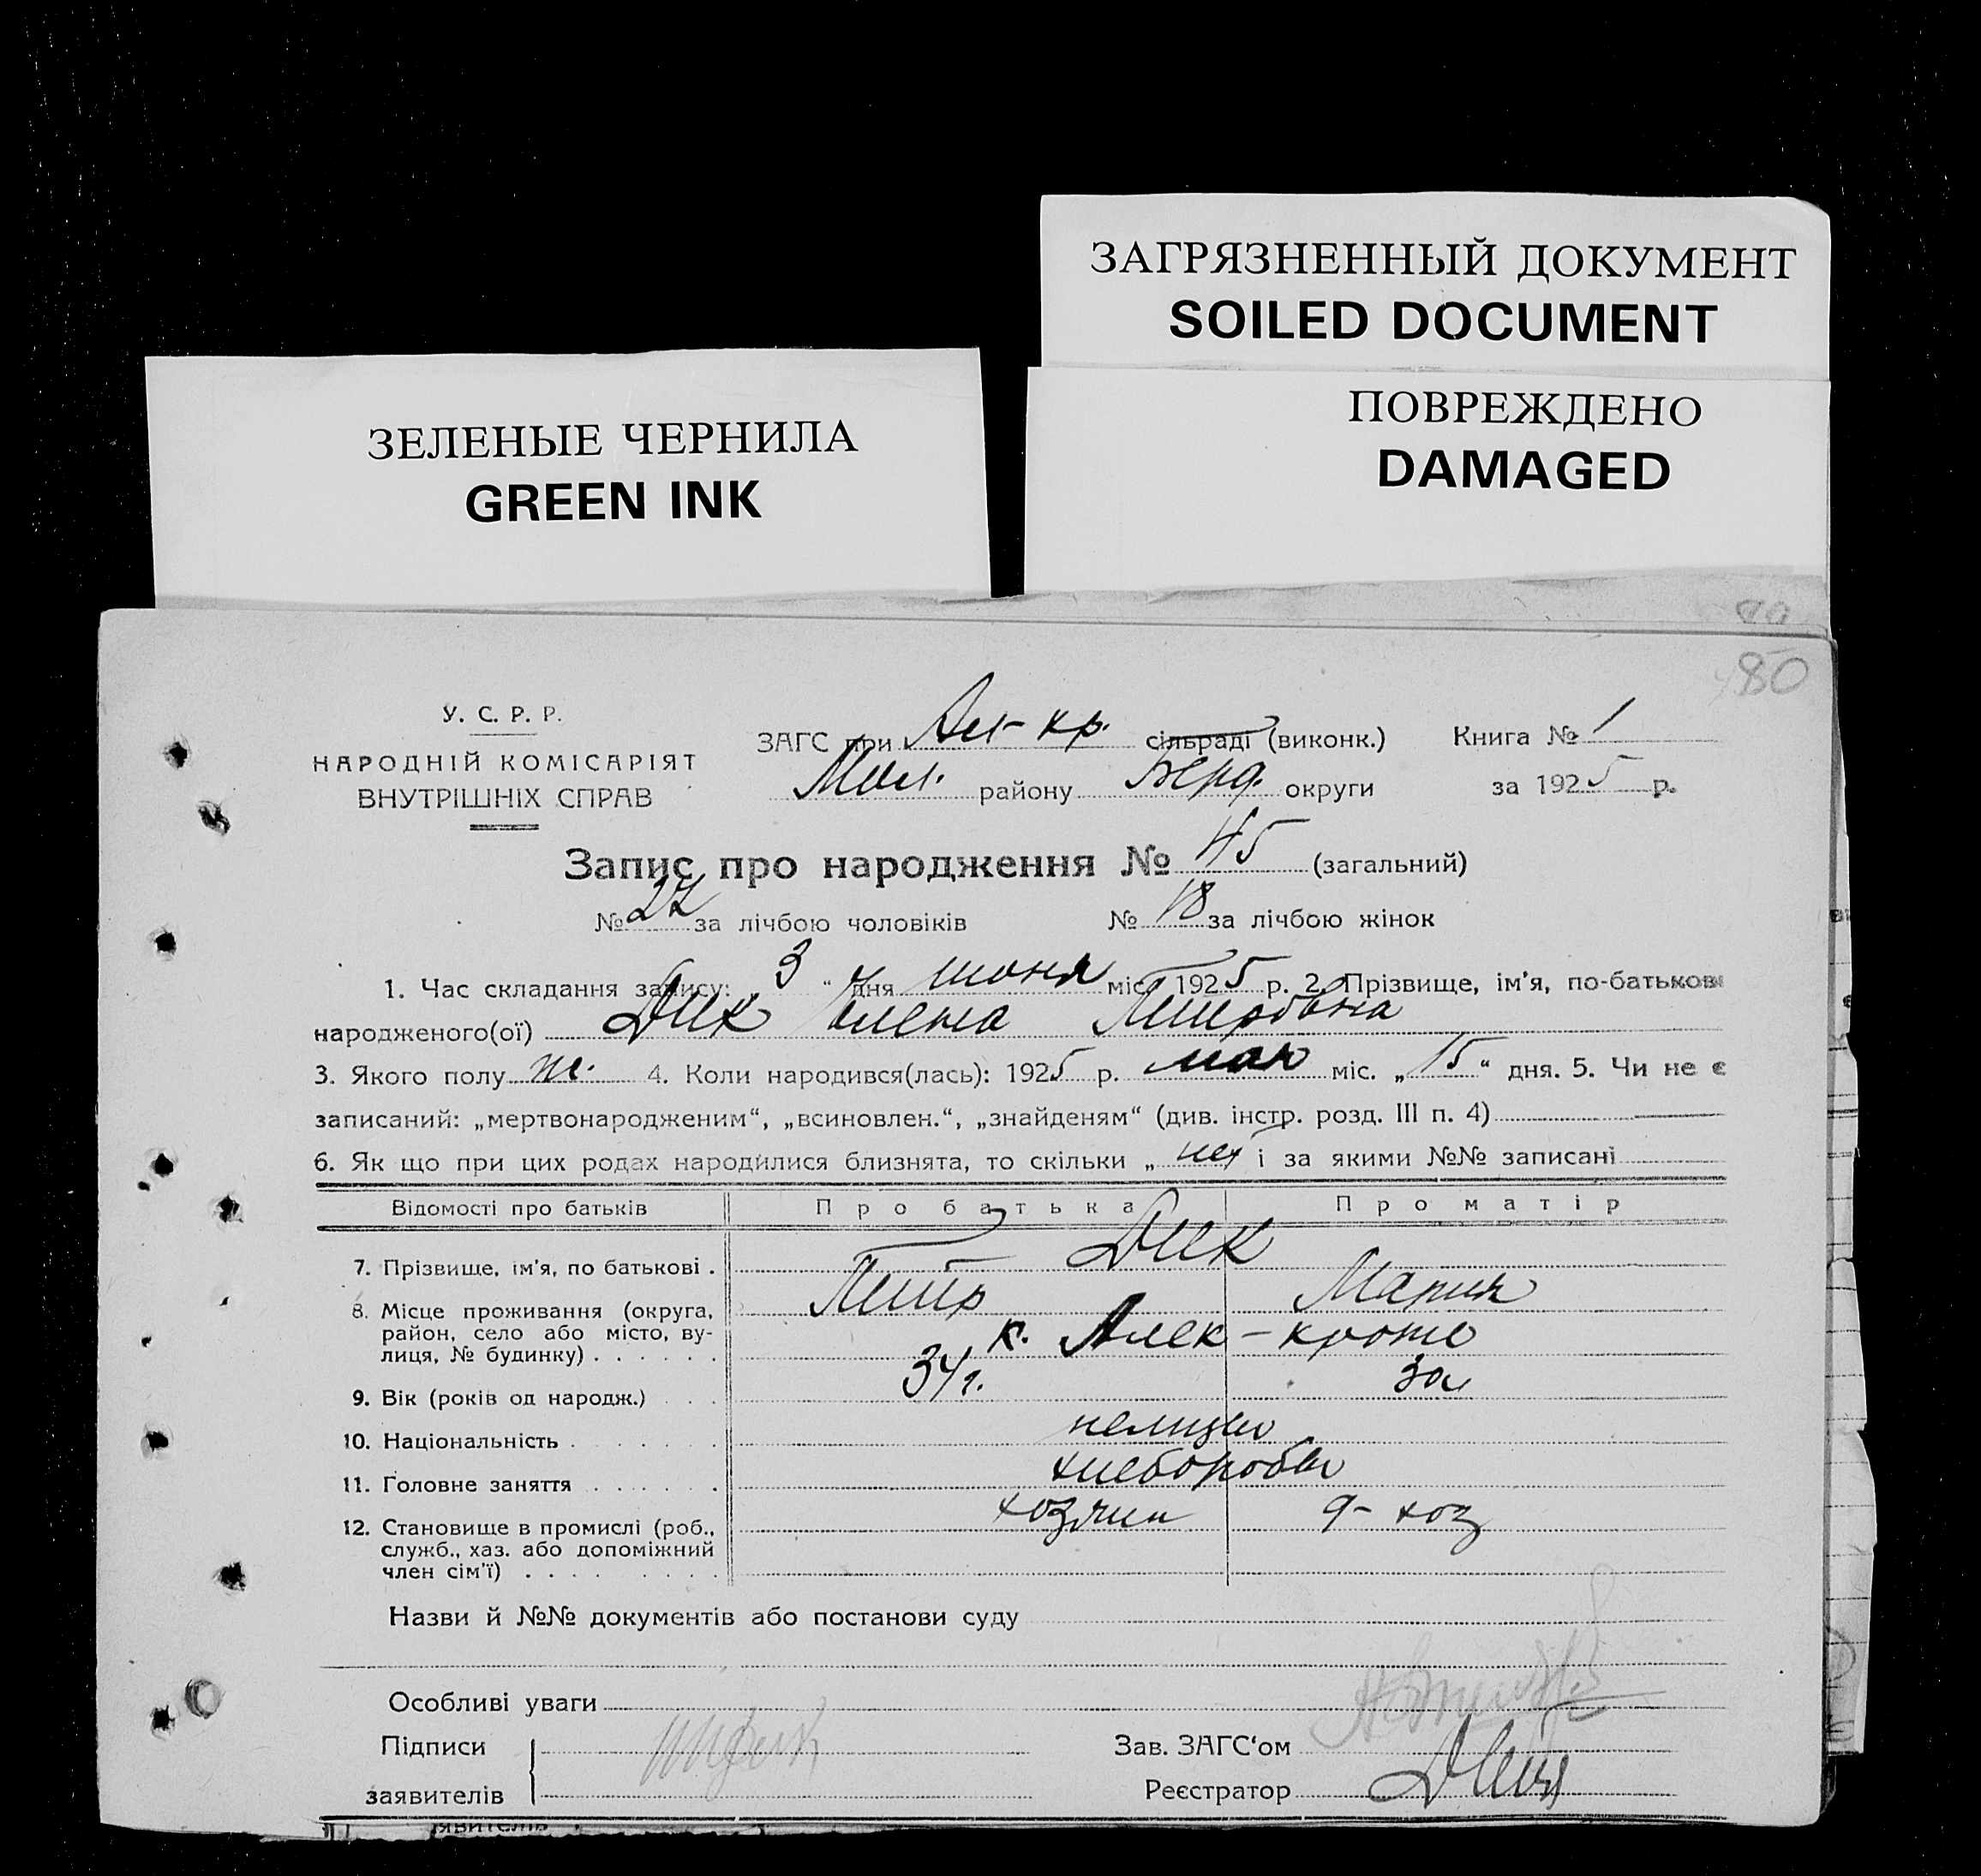 ЗАГРЯЗНЕННЫЙ ДОКУМЕНТ
SOILED DOCUMENT
ПОВРЕЖДЕНО
DAMAGED
ЗЕЛЕНЫЕ ЧЕРНИЛА
GREEN INK
80
У. С. Р. Р.
НАРОДНІЙ КОМІСАРІЯТ
ВНУТРІШНІХ СПРАВ
ЗАГС при Ал-кр. сільраді (виконк.) Книга № 1
Мол. району Берд. округи за 1925 р.
Запис про народження № 45 (загальний)
№ 27 за лічбою чоловіків № 18 за лічбою жінок
1. Час складання запису: „3“ дня июня міс. 1925 р. 2. Прізвище, ім'я, по-батькові
народженого(ої) Дик Елена Петровна
3. Якого полу ж. 4. Коли народився(лась): 1925 р. мая міс. „15“ дня. 5. Чи не є
записаний: „мертвонародженим“, „всиновлен.“, „знайденям“ (див. інстр. розд. III п. 4)
6. Як що при цих родах народилися близнята, то скільки „нет і за якими №№ записані
Відомості про батьків Про батька Про матір
7. Прізвище, ім'я, по батькові . Дик
Петр Мария
8. Місце проживання (округа,
район, село або місто, ву-
лиця, № будинку) . . . . . . к. Алек-кроне
9. Вік (років од народж.) . . . 34 г. 30
10. Національність . . . . . . . немцы
11. Головне заняття . . . . . . хлеборобы
12. Становище в промислі (роб., хозяин д-хоз
служб., хаз. або допоміжний
член сім'ї) . . . . . . . . .
Назви й №№ документів або постанови суду
Особливі уваги
Підписи
заявителів
Зав. ЗАГС'ом
Реєстратор